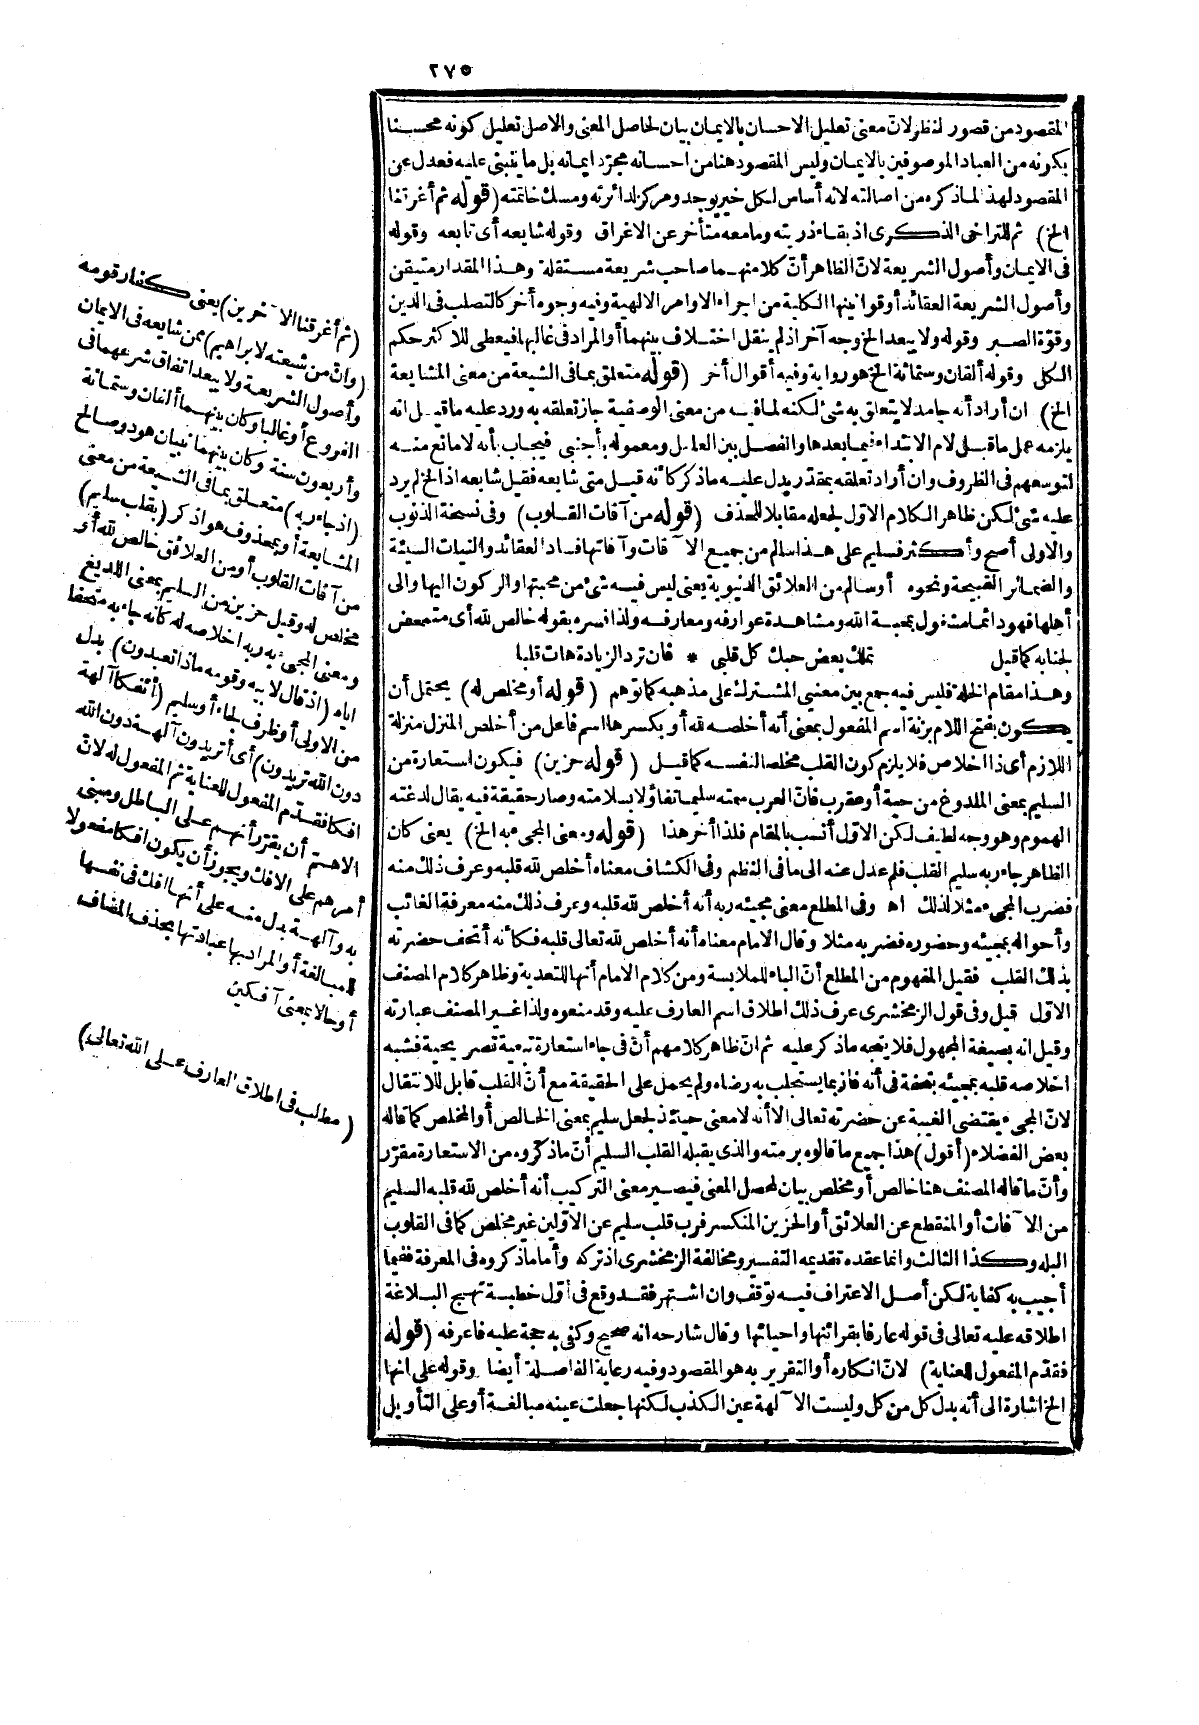 ٢٧٥
المقصود من قصور النظر لانّ معنى تعليل الاحسان بالايمان بيان لحاصل المعنى والاصل تعليل كونه محسنا
بكونه من العباد الموصوفين بالايمان وليس المقصود هنا من احسانه مجرّد ايمانه بل ما ينبنى عليه فعدل عن
المقصود لهذا لما ذكره من اصالته لانه أساس لكل خير يوجد ومركز لدائرته ومسك خاتمته (قوله ثم أغرقنا
الخ) ثم للتراخى الذكرى اذ بقاء ذريته ومامعه متأخر عن الاغراق وقوله شايعه أى تابعه وقوله
فى الايمان وأصول الشريعة لانّ الظاهر أنّ كلا منهما صاحب شريعة مستقلة وهذا المقدار متيقن
وأصول الشريعة العقائد أو قوانينها الكلية من اجراء الاوامر الالهية وفيه وجوه أخر كالتصلب فى الدين
وقوّة الصبر وقوله ولا يبعد الخ وجه آخر اذ لم ينقل اختلاف بينهما أو المراد فى غالبها فيعطى للاكثر حكم
الكل وقوله ألفان وستمائة الخ هو رواية وفيه أقوال أخر (قوله متعلق بما فى الشيعة من معنى المشايعة
الخ) ان أراد أنه جامد لا يتعلق به شئ لكنه لما فيه من معنى الوصفية جاز تعلقه به ورد عليه ما قيل انه
يلزمه عمل ما قبل لام الابتداء فيما بعدها والفصل بين العامل ومعموله بأجنبى فيجاب بأنه لا مانع منه
لتوسعهم فى الظروف وان أراد تعلقه بمقدّر يدل عليه ما ذكر كأنه قيل متى شايعه فقيل شايعه اذ الخ لم يرد
عليه شئ لكن ظاهر الكلام الاوّل لجعله مقابلا للحذف (قوله من آفات القلوب) وفى نسخة الذنوب
والاولى أصح وأكثر فسليم على هذا سالم من جميع الآفات وآفاتها فساد العقائد والنيات السيئة
والضمائر القبيحة ونحوه أو سالم من العلائق الدنيوية يعنى ليس فيه شئ من محبتها والركون اليها والى
أهلها فهو دائما مشغول بمحبة الله ومشاهدة عوارفه ومعارفه ولذا فسره بقوله خالص لله أى متمحض
لجنابه كما قيل تملك بعض حبك كل قلبى * فان ترد الزيادة هات قلبا
وهذا مقام الخلة فليس فيه جمع بين معنيى المشترك على مذهبه كما توهم (قوله أو مخلص له) يحتمل أن
يكون بفتح اللام بزنة اسم المفعول بمعنى أنه أخلصه لله أو بكسرها اسم فاعل من أخلص المنزل منزلة
اللازم أى ذا اخلاص فلا يلزم كون القلب مخلصا لنفسه كما قيل (قوله حزين) فيكون استعارة من
السليم بمعنى الملدوغ من حية أو عقرب فانّ العرب سمته سليما تفاؤلا بسلامته وصار حقيقة فيه يقال لدغته
الهموم وهو وجه لطيف لكن الاوّل أنسب بالمقام فلذا أخر هذا (قوله ومعنى المجىء به الخ) يعنى كان
الظاهر جاء ربه سليم القلب فلم عدل عنه الى ما فى النظم وفى الكشاف معناه أخلص لله قلبه وعرف ذلك منه
فضرب المجىء مثلا لذلك اه وفى المطلع معنى مجيئه ربه أنه أخلص لله قلبه وعرف ذلك منه معرفة الغائب
وأحواله بمجيئه وحضوره فضربه مثلا وقال الامام معناه أنه أخلص لله تعالى قلبه فكأنه أتحف حضرته
بذلك القلب فقيل المفهوم من المطلع أنّ الباء للملابسة ومن كلام الامام أنها للتعدية وظاهر كلام المصنف
الاوّل قيل وفى قول الزمخشرى عرف ذلك اطلاق اسم العارف عليه وقد منعوه ولذا غير المصنف عبارته
وقيل انه بصيغة المجهول فلا يتجه ما ذكر عليه ثم انّ ظاهر كلامهم أنّ فى جاء استعارة تبعية تصريحية فشبه
اخلاصه قلبه بمجيئه بتحفة فى أنه فاز بما يستجلب به رضاه ولم يحمل على الحقيقة مع أنّ القلب قابل للانتقال
لانّ المجىء يقتضى الغيبة عن حضرته تعالى الا أنه لا معنى حينئذ لجعل سليم بمعنى الخالص أو المخلص كما قاله
بعض الفضلاء (أقول) هذا جميع ما قالوه برمته والذى يقبله القلب السليم أنّ ما ذكروه من الاستعارة مقرّر
وأنّ ما قاله المصنف هنا خالص أو مخلص بيان لمحصل المعنى فيصير معنى التركيب أنه أخلص لله قلبه السليم
من الآفات أو المنقطع عن العلائق أو الحزين المنكسر فرب قلب سليم عن الاوّلين غير مخلص كما فى القلوب
البله وكذا الثالث وانما عقده تقديمه التفسير ومخالفة الزمخشرى اذ تركه وأما ما ذكروه فى المعرفة ففيما
أجيب به كفاية لكن أصل الاعتراف فيه توقف وان اشتهر فقد وقع فى أوّل خطبة نهج البلاغة
اطلاقه عليه تعالى فى قوله عارفا بقرائنها واحيائها وقال شارحه انه صحيح وكفى به حجة عليه فاعرفه (قوله
فقدّم المفعول للعناية) لانّ انكاره أو التقرير به هو المقصود وفيه رعاية الفاصلة أيضا وقوله على انها
الخ اشارة الى أنه بدل كل من كل وليست الآلهة عين الكذب لكنها جعلت عينه مبالغة أو على التأويل
(ثم أغرقنا الآخرين) يعنى كفار قومه
(وانّ من شيعته لابراهيم) ممن شايعه فى الايمان
وأصول الشريعة ولا يبعد اتفاق شرعهما فى
الفروع أو غالبا وكان بينهما ألفان وستمائة
وأربعون سنة وكان بينهما نبيان هود وصالح
(اذ جاء ربه) متعلق بما فى الشيعة من معنى
المشايعة أو بمحذوف هو اذكر (بقلب سليم)
من آفات القلوب أو من العلائق خالص لله أو
مخلص له وقيل حزين من السليم بمعنى اللديغ
ومعنى المجىء به ربه اخلاصه له كأنه جاء به متحفا
اياه (اذ قال لابيه وقومه ماذا تعبدون) بدل
من الاولى أو ظرف لجاء أو سليم (أئفكا آلهة
دون الله تريدون) أى أتريدون آلهة دون الله
افكا فقدّم المفعول للعناية ثم المفعول له لانّ
الاهمّ أن يقرّر أنهم على الباطل ومبنى
أمرهم على الافك ويجوز أن يكون افكا مفعولا
به وآلهة بدل منه على أنها افك فى نفسها
للمبالغة أو المراد بها عبادتها بحذف المضاف
أو حالا بمعنى آفكين
(مطلب فى اطلاق العارف على الله تعالى)